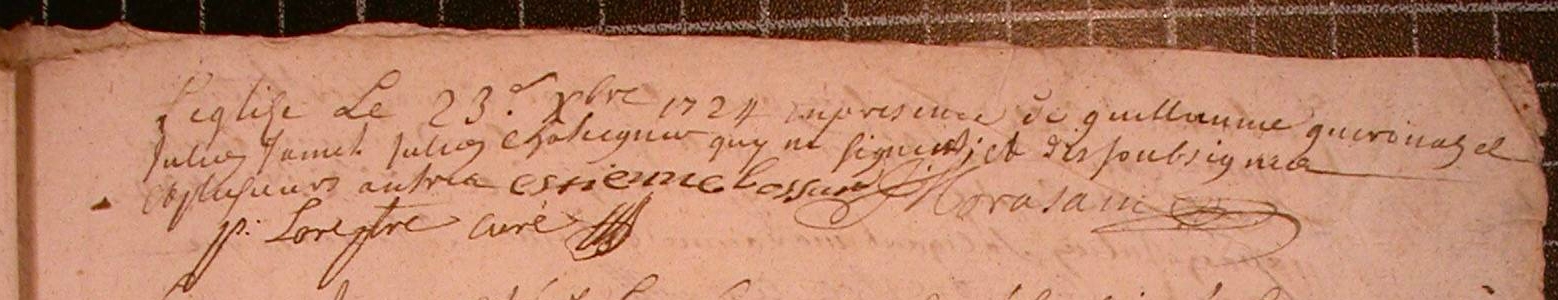 L'eglise Le 23.e Xbre 1724 en presence de guillaume guerinaz et
Julien Jamet Julien Chateigner quy ne signent, et des soubsignez
et plusieurs autres estienne bossar J Morasain
p. Lorestre curé